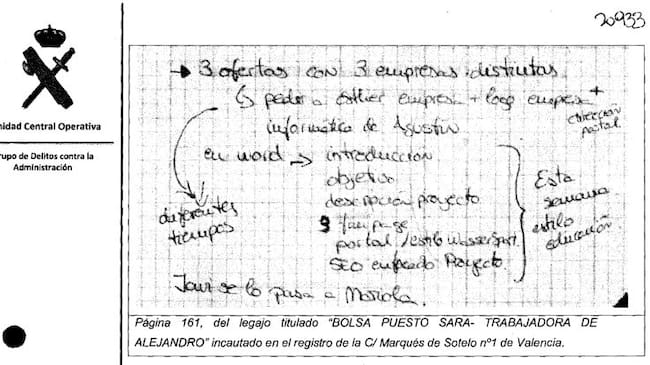 20933
nidad Central Operativa
rupo de Delitos contra la
Administración
→ 3 ofertas con 3 empresas distintas
↳ pedir a esther empresa + logo empresa +
dirección
postal
informática de Agustín
en word → introducción
objetivo
descripción proyecto
fan page
portal / estilo
SEO enfocado Proyecto.
diferentes
tiempos
Esta
semana
estilo
educación
Javi se lo pasa a Mariola.
Página 161, del legajo titulado "BOLSA PUESTO SARA- TRABAJADORA DE
ALEJANDRO" incautado en el registro de la C/ Marqués de Sotelo nº1 de Valencia.